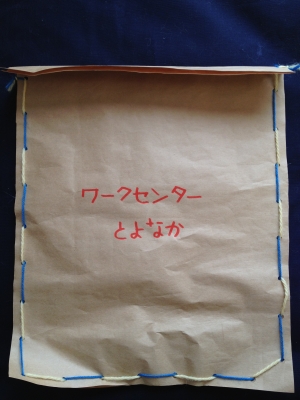 ワークセンター
とよなか